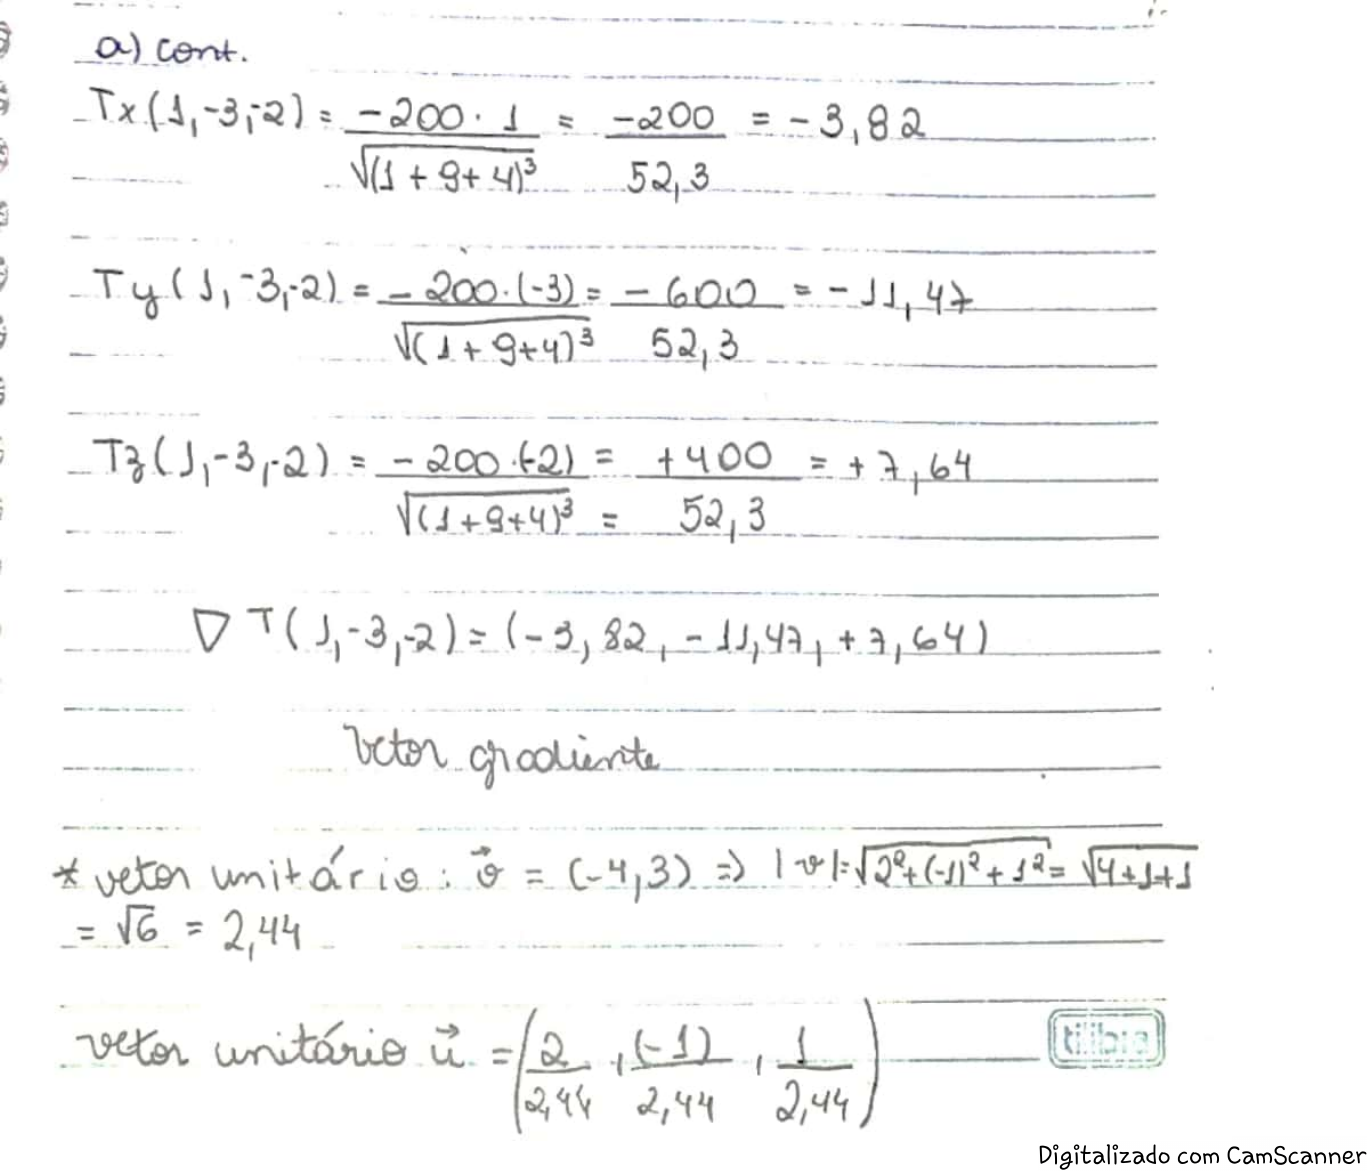 a) cont.
Tx(1,-3,-2) = -200 · 1 / √(1 + 9 + 4)³ = -200 / 52,3 = -3,82
Ty(1,-3,-2) = -200·(-3) / √(1+9+4)³ = -600 / 52,3 = -11,47
Tz(1,-3,-2) = -200·(-2) / √(1+9+4)³ = +400 / 52,3 = +7,64
∇T(1,-3,-2) = (-3,82, -11,47, +7,64)
Vetor gradiente
* vetor unitário: v⃗ = (-4,3) => |v|=√2²+(-1)²+1² = √4+1+1
= √6 = 2,44
vetor unitário u⃗ = (2/2,44, (-1)/2,44, 1/2,44)
tilibra
Digitalizado com CamScanner